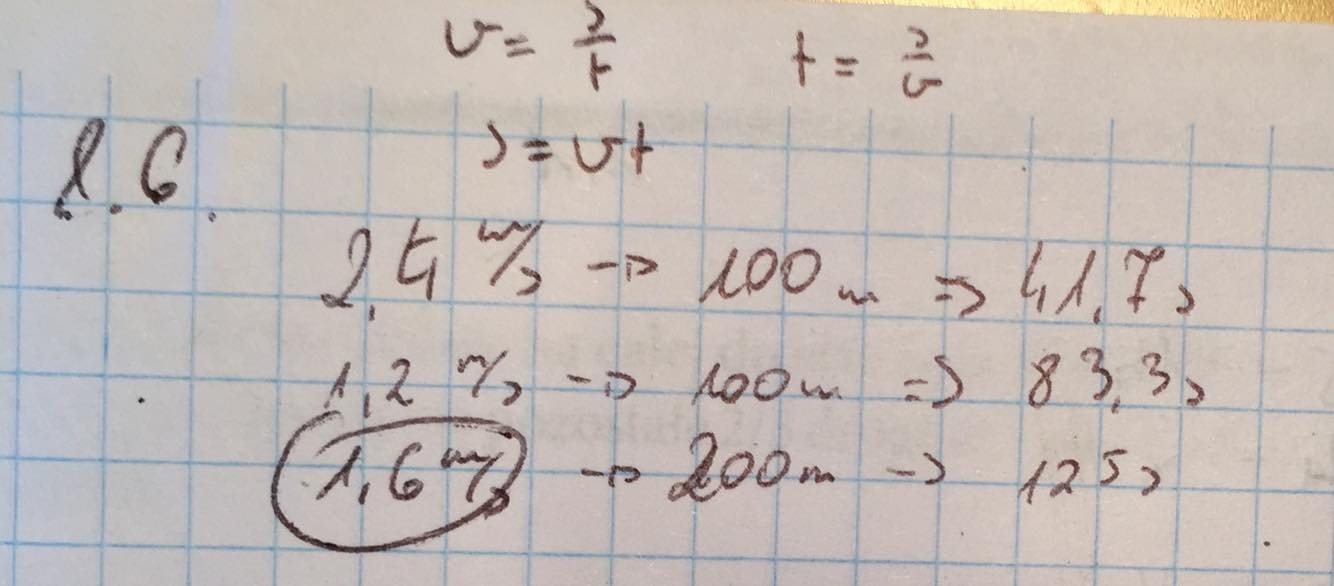 v = s/t t = s/v
s = vt
l.6.
2,4 m/s → 100 m ⇒ 41,7 s
1,2 m/s → 100 m ⇒ 83,3 s
1,6 m/s → 200 m → 125 s